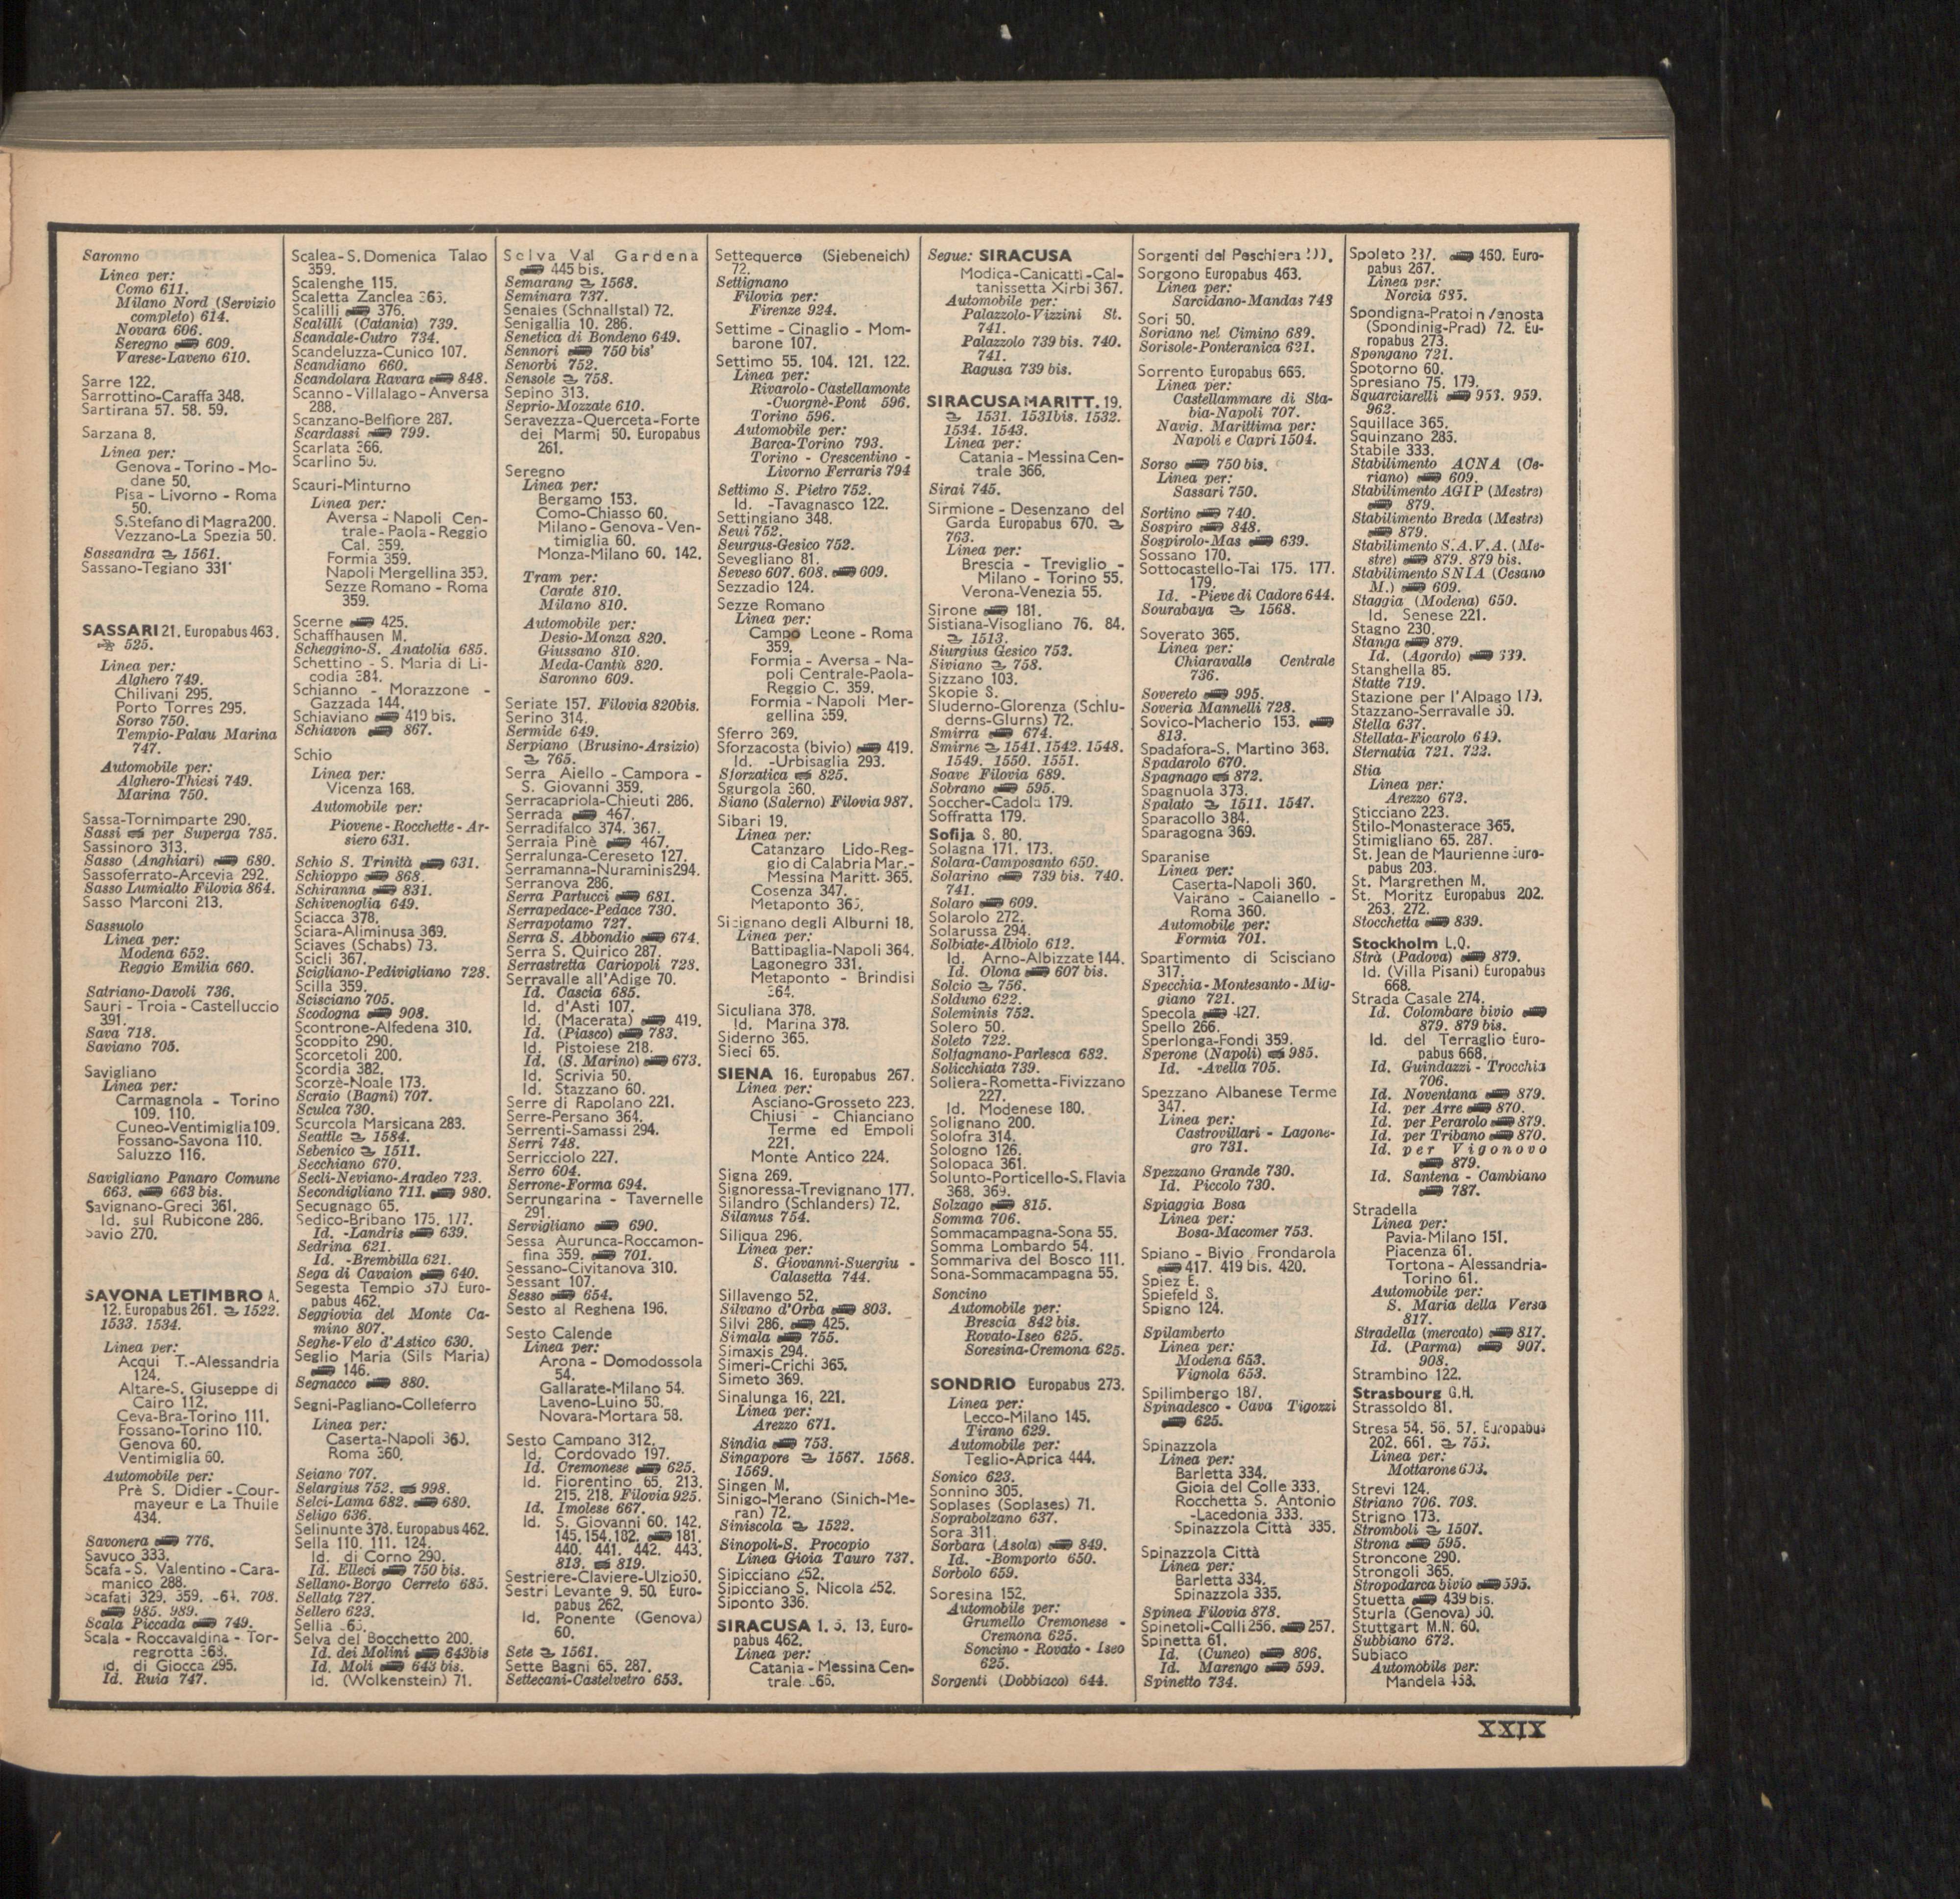 Saronno
Linea per:
Como 611.
Milano Nord (Servizio
completo) 614.
Novara 606.
Seregno 609.
Varese-Laveno 610.
Sarre 122.
Sarrottino-Caraffa 348.
Sartirana 57. 58. 59.
Sarzana 8.
Linea per:
Genova - Torino - Mo-
dane 50.
Pisa - Livorno - Roma
50.
S.Stefano di Magra 200.
Vezzano-La Spezia 50.
Sassandra 1561.
Sassano-Tegiano 331
SASSARI 21. Europabus 463.
525.
Linea per:
Alghero 749.
Chilivani 295.
Porto Torres 295.
Sorso 750.
Tempio-Palau Marina
747.
Automobile per:
Alghero-Thiesi 749.
Marina 750.
Sassa-Tornimparte 290.
Sassi per Superga 785.
Sassinoro 313.
Sasso (Anghiari) 680.
Sassoferrato-Arcevia 292.
Sasso Lumialto Filovia 864.
Sasso Marconi 213.
Sassuolo
Linea per:
Modena 652.
Reggio Emilia 660.
Satriano-Davoli 736.
Sauri - Troia - Castelluccio
391.
Sava 718.
Saviano 705.
Savigliano
Linea per:
Carmagnola - Torino
109. 110.
Cuneo-Ventimiglia 109.
Fossano-Savona 110.
Saluzzo 116.
Savigliano Panaro Comune
663. 663 bis.
Savignano-Greci 361.
Id. sul Rubicone 286.
Savio 270.
SAVONA LETIMBRO A.
12. Europabus 261. 1522.
1533. 1534.
Linea per:
Acqui T.-Alessandria
124.
Altare-S. Giuseppe di
Cairo 112.
Ceva-Bra-Torino 111.
Fossano-Torino 110.
Genova 60.
Ventimiglia 60.
Automobile per:
Prè S. Didier - Cour-
mayeur e La Thuile
434.
Savonera 776.
Savuco 333.
Scafa - S. Valentino - Cara-
manico 288.
Scafati 329. 359. 708.
985. 989.
Scala Piccada 749.
Scala - Roccavaldina - Tor-
regrotta 368.
Id. di Giocca 295.
Id. Ruia 747.
Scalea - S. Domenica Talao
359.
Scalenghe 115.
Scaletta Zanclea 366.
Scalilli 376.
Scalilli (Catania) 739.
Scandale-Cutro 734.
Scandeluzza-Cunico 107.
Scandiano 660.
Scandolara Ravara 848.
Scanno - Villalago - Anversa
288.
Scanzano-Belfiore 287.
Scardassi 799.
Scarlata 366.
Scarlino 50.
Scauri-Minturno
Linea per:
Aversa - Napoli Cen-
trale - Paola - Reggio
Cal. 359.
Formia 359.
Napoli Mergellina 359.
Sezze Romano - Roma
359.
Scerne 425.
Schaffhausen M.
Scheggino-S. Anatolia 685.
Schettino - S. Maria di Li-
codia 384.
Schianno - Morazzone -
Gazzada 144.
Schiaviano 419 bis.
Schiavon 867.
Schio
Linea per:
Vicenza 168.
Automobile per:
Piovene - Rocchette - Ar-
siero 631.
Schio S. Trinità 631.
Schioppo 868.
Schiranna 831.
Schivenoglia 649.
Sciacca 378.
Sciara-Aliminusa 369.
Sciaves (Schabs) 73.
Scicli 367.
Scigliano-Pedivigliano 728.
Scilla 359.
Scisciano 705.
Scodogna 908.
Scontrone-Alfedena 310.
Scoppito 290.
Scorcetoli 200.
Scordia 382.
Scorzè-Noale 173.
Scraio (Bagni) 707.
Sculca 730.
Scurcola Marsicana 283.
Seattle 1584.
Sebenico 1511.
Secchiano 670.
Seclì-Neviano-Aradeo 723.
Secondigliano 711. 980.
Secugnago 65.
Sedico-Bribano 175. 177.
Id. -Landris 639.
Sedrina 621.
Id. -Brembilla 621.
Sega di Cavaion 640.
Segesta Tempio 373 Euro-
pabus 462.
Seggiovia del Monte Ca-
mino 807.
Seghe-Velo d'Astico 630.
Seglio Maria (Sils Maria)
146.
Segnacco 880.
Segni-Pagliano-Colleferro
Linea per:
Caserta-Napoli 360.
Roma 360.
Seiano 707.
Selargius 752. 998.
Selci-Lama 682. 680.
Seligo 636.
Selinunte 378. Europabus 462.
Sella 110. 111. 124.
Id. di Corno 290.
Id. Elleci 750 bis.
Sellano-Borgo Cerreto 685.
Sellata 727.
Sellero 623.
Sellia
Selva del Bocchetto 200.
Id. dei Molini 643bis
Id. Moli 643 bis.
Id. (Wolkenstein) 71.
Selva Val Gardena
445 bis.
Semarang 1568.
Seminara 737.
Senales (Schnallstal) 72.
Senigallia 10. 286.
Senetica di Bondeno 649.
Sennori 750 bis
Senorbì 752.
Sensole 758.
Sepino 313.
Seprio-Mozzate 610.
Seravezza-Querceta-Forte
dei Marmi 50. Europabus
261.
Seregno
Linea per:
Bergamo 153.
Como-Chiasso 60.
Milano - Genova - Ven-
timiglia 60.
Monza-Milano 60. 142.
Tram per:
Carate 810.
Milano 810.
Automobile per:
Desio-Monza 820.
Giussano 810.
Meda-Cantù 820.
Saronno 609.
Seriate 157. Filovia 820bis.
Serino 314.
Sermide 649.
Serpiano (Brusino-Arsizio)
765.
Serra Aiello - Campora -
S. Giovanni 359.
Serracapriola-Chieuti 286.
Serrada 467.
Serradifalco 374. 367.
Serraia Pinè 467.
Serralunga-Cereseto 127.
Serramanna-Nuraminis 294.
Serranova 286.
Serra Partucci 681.
Serrapedace-Pedace 730.
Serrapotamo 727.
Serra S. Abbondio 674.
Serra S. Quirico 287.
Serrastretta Cariopoli 728.
Serravalle all'Adige 70.
Id. Cascia 685.
Id. d'Asti 107.
Id. (Macerata) 419.
Id. (Piasco) 783.
Id. Pistoiese 218.
Id. (S. Marino) 673.
Id. Scrivia 50.
Id. Stazzano 60.
Serre di Rapolano 221.
Serre-Persano 364.
Serrenti-Samassi 294.
Serri 748.
Serricciolo 227.
Serro 604.
Serrone-Forma 694.
Serrungarina - Tavernelle
291.
Servigliano 690.
Sessa Aurunca-Roccamon-
fina 359. 701.
Sessano-Civitanova 310.
Sessant 107.
Sesso 654.
Sesto al Reghena 196.
Sesto Calende
Linea per:
Arona - Domodossola
54.
Gallarate-Milano 54.
Laveno-Luino 58.
Novara-Mortara 58.
Sesto Campano 312.
Id. Cordovado 197.
Id. Cremonese 625.
Id. Fiorentino 65. 213.
215. 218. Filovia 925.
Id. Imolese 667.
Id. S. Giovanni 60. 142.
145. 154. 182. 181.
440. 441. 442. 443.
813. 819.
Sestriere-Claviere-Ulzio 50.
Sestri Levante 9. 50. Euro-
pabus 262.
Id. Ponente (Genova)
60.
Sete 1561.
Sette Bagni 65. 287.
Settecani-Castelvetro 653.
Settequerce (Siebeneich)
72.
Settignano
Filovia per:
Firenze 924.
Settime - Cinaglio - Mom-
barone 107.
Settimo 55. 104. 121. 122.
Linea per:
Rivarolo - Castellamonte
-Cuorgnè-Pont 596.
Torino 596.
Automobile per:
Barca-Torino 793.
Torino - Crescentino -
Livorno Ferraris 794
Settimo S. Pietro 752.
Id. -Tavagnasco 122.
Settingiano 348.
Seui 752.
Seurgus-Gesico 752.
Sevegliano 81.
Seveso 607. 608. 609.
Sezzadio 124.
Sezze Romano
Linea per:
Campo Leone - Roma
359.
Formia - Aversa - Na-
poli Centrale-Paola-
Reggio C. 359.
Formia - Napoli Mer-
gellina 359.
Sferro 369.
Sforzacosta (bivio) 419.
Id. -Urbisaglia 293.
Sforzatica 825.
Sgurgola 360.
Siano (Salerno) Filovia 987.
Sibari 19.
Linea per:
Catanzaro Lido-Reg-
gio di Calabria Mar.-
Messina Maritt. 365.
Cosenza 347.
Metaponto 365.
Sicignano degli Alburni 18.
Linea per:
Battipaglia-Napoli 364.
Lagonegro 331.
Metaponto - Brindisi
364.
Siculiana 378.
Id. Marina 378.
Siderno 365.
Sieci 65.
SIENA 16. Europabus 267.
Linea per:
Asciano-Grosseto 223.
Chiusi - Chianciano
Terme ed Empoli
221.
Monte Antico 224.
Signa 269.
Signoressa-Trevignano 177.
Silandro (Schlanders) 72.
Silanus 754.
Siliqua 296.
Linea per:
S. Giovanni-Suergiu -
Calasetta 744.
Sillavengo 52.
Silvano d'Orba 803.
Silvi 286. 425.
Simala 755.
Simaxis 294.
Simeri-Crichi 365.
Simeto 369.
Sinalunga 16. 221.
Linea per:
Arezzo 671.
Sindia 753.
Singapore 1567. 1568.
1569.
Singen M.
Sinigo-Merano (Sinich-Me-
ran) 72.
Siniscola 1522.
Sinopoli-S. Procopio
Linea Gioia Tauro 737.
Sipicciano 252.
Sipicciano S. Nicola 252.
Siponto 336.
SIRACUSA 1. 5. 13. Euro-
pabus 462.
Linea per:
Catania - Messina Cen-
trale 366.
Segue: SIRACUSA
Modica-Canicattì-Cal-
tanissetta Xirbi 367.
Automobile per:
Palazzolo-Vizzini St.
741.
Palazzolo 739 bis. 740.
741.
Ragusa 739 bis.
SIRACUSA MARITT. 19.
1531. 1531bis. 1532.
1534. 1543.
Linea per:
Catania - Messina Cen-
trale 366.
Sirai 745.
Sirmione - Desenzano del
Garda Europabus 670.
763.
Linea per:
Brescia - Treviglio -
Milano - Torino 55.
Verona-Venezia 55.
Sirone 181.
Sistiana-Visogliano 76. 84.
1513.
Siurgius Gesico 752.
Siviano 758.
Sizzano 103.
Skopie S.
Sluderno-Glorenza (Schlu-
derns-Glurns) 72.
Smirra 674.
Smirne 1541. 1542. 1548.
1549. 1550. 1551.
Soave Filovia 689.
Sobrano 595.
Soccher-Cadola 179.
Soffratta 179.
Sofija S. 80.
Solagna 171. 173.
Solara-Camposanto 650.
Solarino 739 bis. 740.
741.
Solaro 609.
Solarolo 272.
Solarussa 294.
Solbiate-Albiolo 612.
Id. Arno-Albizzate 144.
Id. Olona 607 bis.
Solcio 756.
Solduno 622.
Soleminis 752.
Solero 50.
Soleto 722.
Solfagnano-Parlesca 682.
Solicchiata 739.
Soliera-Rometta-Fivizzano
227.
Id. Modenese 180.
Solignano 200.
Solofra 314.
Sologno 126.
Solopaca 361.
Solunto-Porticello-S. Flavia
368. 369.
Solzago 815.
Somma 706.
Sommacampagna-Sona 55.
Somma Lombardo 54.
Sommariva del Bosco 111.
Sona-Sommacampagna 55.
Soncino
Automobile per:
Brescia 842 bis.
Rovato-Iseo 625.
Soresina-Cremona 625.
SONDRIO Europabus 273.
Linea per:
Lecco-Milano 145.
Tirano 629.
Automobile per:
Teglio-Aprica 444.
Sonico 623.
Sonnino 305.
Soplases (Soplases) 71.
Soprabolzano 637.
Sora 311.
Sorbara (Asola) 849.
Id. -Bomporto 650.
Sorbolo 659.
Soresina 152.
Automobile per:
Grumello Cremonese -
Cremona 625.
Soncino - Rovato - Iseo
625.
Sorgenti (Dobbiaco) 644.
Sorgenti del Peschiera
Sorgono Europabus 463.
Linea per:
Sarcidano-Mandas 748
Sori 50.
Soriano nel Cimino 689.
Sorisole-Ponteranica 621.
Sorrento Europabus 666.
Linea per:
Castellammare di Sta-
bia-Napoli 707.
Navig. Marittima per:
Napoli e Capri 1504.
Sorso 750 bis.
Linea per:
Sassari 750.
Sortino 740.
Sospiro 848.
Sospirolo-Mas 639.
Sossano 170.
Sottocastello-Tai 175. 177.
179.
Id. -Pieve di Cadore 644.
Sourabaya 1568.
Soverato 365.
Linea per:
Chiaravalle Centrale
736.
Sovereto 995.
Soveria Mannelli 728.
Sovico-Macherio 153.
813.
Spadafora-S. Martino 368.
Spadarolo 670.
Spagnago 872.
Spagnuola 373.
Spalato 1511. 1547.
Sparacollo 384.
Sparagogna 369.
Sparanise
Linea per:
Caserta-Napoli 360.
Vairano - Caianello -
Roma 360.
Automobile per:
Formia 701.
Spartimento di Scisciano
317.
Specchia - Montesanto - Mig-
giano 721.
Specola 427.
Spello 266.
Sperlonga-Fondi 359.
Sperone (Napoli) 985.
Id. -Avella 705.
Spezzano Albanese Terme
347.
Linea per:
Castrovillari - Lagone-
gro 731.
Spezzano Grande 730.
Id. Piccolo 730.
Spiaggia Bosa
Linea per:
Bosa-Macomer 753.
Spiano - Bivio Frondarola
417. 419 bis. 420.
Spiez E.
Spiefeld S.
Spigno 124.
Spilamberto
Linea per:
Modena 653.
Vignola 653.
Spilimbergo 187.
Spinadesco - Cava Tigozzi
625.
Spinazzola
Linea per:
Barletta 334.
Gioia del Colle 333.
Rocchetta S. Antonio
-Lacedonia 333.
Spinazzola Città 335.
Spinazzola Città
Linea per:
Barletta 334.
Spinazzola 335.
Spinea Filovia 878.
Spinetoli-Colli 256. 257.
Spinetta 61.
Id. (Cuneo) 806.
Id. Marengo 599.
Spinetto 734.
Spoleto 287. 460. Euro-
pabus 267.
Linea per:
Norcia 685.
Spondigna-Prato in Venosta
(Spondinig-Prad) 72. Eu-
ropabus 273.
Spongano 721.
Spotorno 60.
Spresiano 75. 179.
Squarciarelli 953. 959.
962.
Squillace 365.
Squinzano 285.
Stabile 333.
Stabilimento ACNA (Ce-
riano) 609.
Stabilimento AGIP (Mestre)
879.
Stabilimento Breda (Mestre)
879.
Stabilimento S.A.V.A. (Me-
stre) 879. 879 bis.
Stabilimento SNIA (Cesano
M.) 609.
Staggia (Modena) 650.
Id. Senese 221.
Stagno 230.
Stanga 879.
Id. (Agordo) 639.
Stanghella 85.
Statte 719.
Stazione per l'Alpago 179.
Stazzano-Serravalle 50.
Stella 637.
Stellata-Ficarolo 649.
Sternatia 721. 722.
Stia
Linea per:
Arezzo 672.
Sticciano 223.
Stilo-Monasterace 365.
Stimigliano 65. 287.
St. Jean de Maurienne Euro-
pabus 203.
St. Margrethen M.
St. Moritz Europabus 202.
263. 272.
Stocchetta 839.
Stockholm L.O.
Strà (Padova) 879.
Id. (Villa Pisani) Europabus
668.
Strada Casale 274.
Id. Colombare bivio
879. 879 bis.
Id. del Terraglio Euro-
pabus 668.
Id. Guindazzi - Trocchia
706.
Id. Noventana 879.
Id. per Arre 870.
Id. per Perarolo 879.
Id. per Tribano 870.
Id. per Vigonovo
879.
Id. Santena - Cambiano
787.
Stradella
Linea per:
Pavia-Milano 151.
Piacenza 61.
Tortona - Alessandria-
Torino 61.
Automobile per:
S. Maria della Versa
817.
Stradella (mercato) 817.
Id. (Parma) 907.
908.
Strambino 122.
Strasbourg G.H.
Strassoldo 81.
Stresa 54. 56. 57. Europabus
202. 661. 753.
Linea per:
Mottarone 603.
Strevi 124.
Striano 706. 708.
Strigno 173.
Stromboli 1507.
Strona 595.
Stroncone 290.
Strongoli 365.
Stropodarca bivio 595.
Stuetta 439 bis.
Sturla (Genova) 50.
Stuttgart M.N. 60.
Subbiano 672.
Subiaco
Automobile per:
Mandela 453.
XXIX